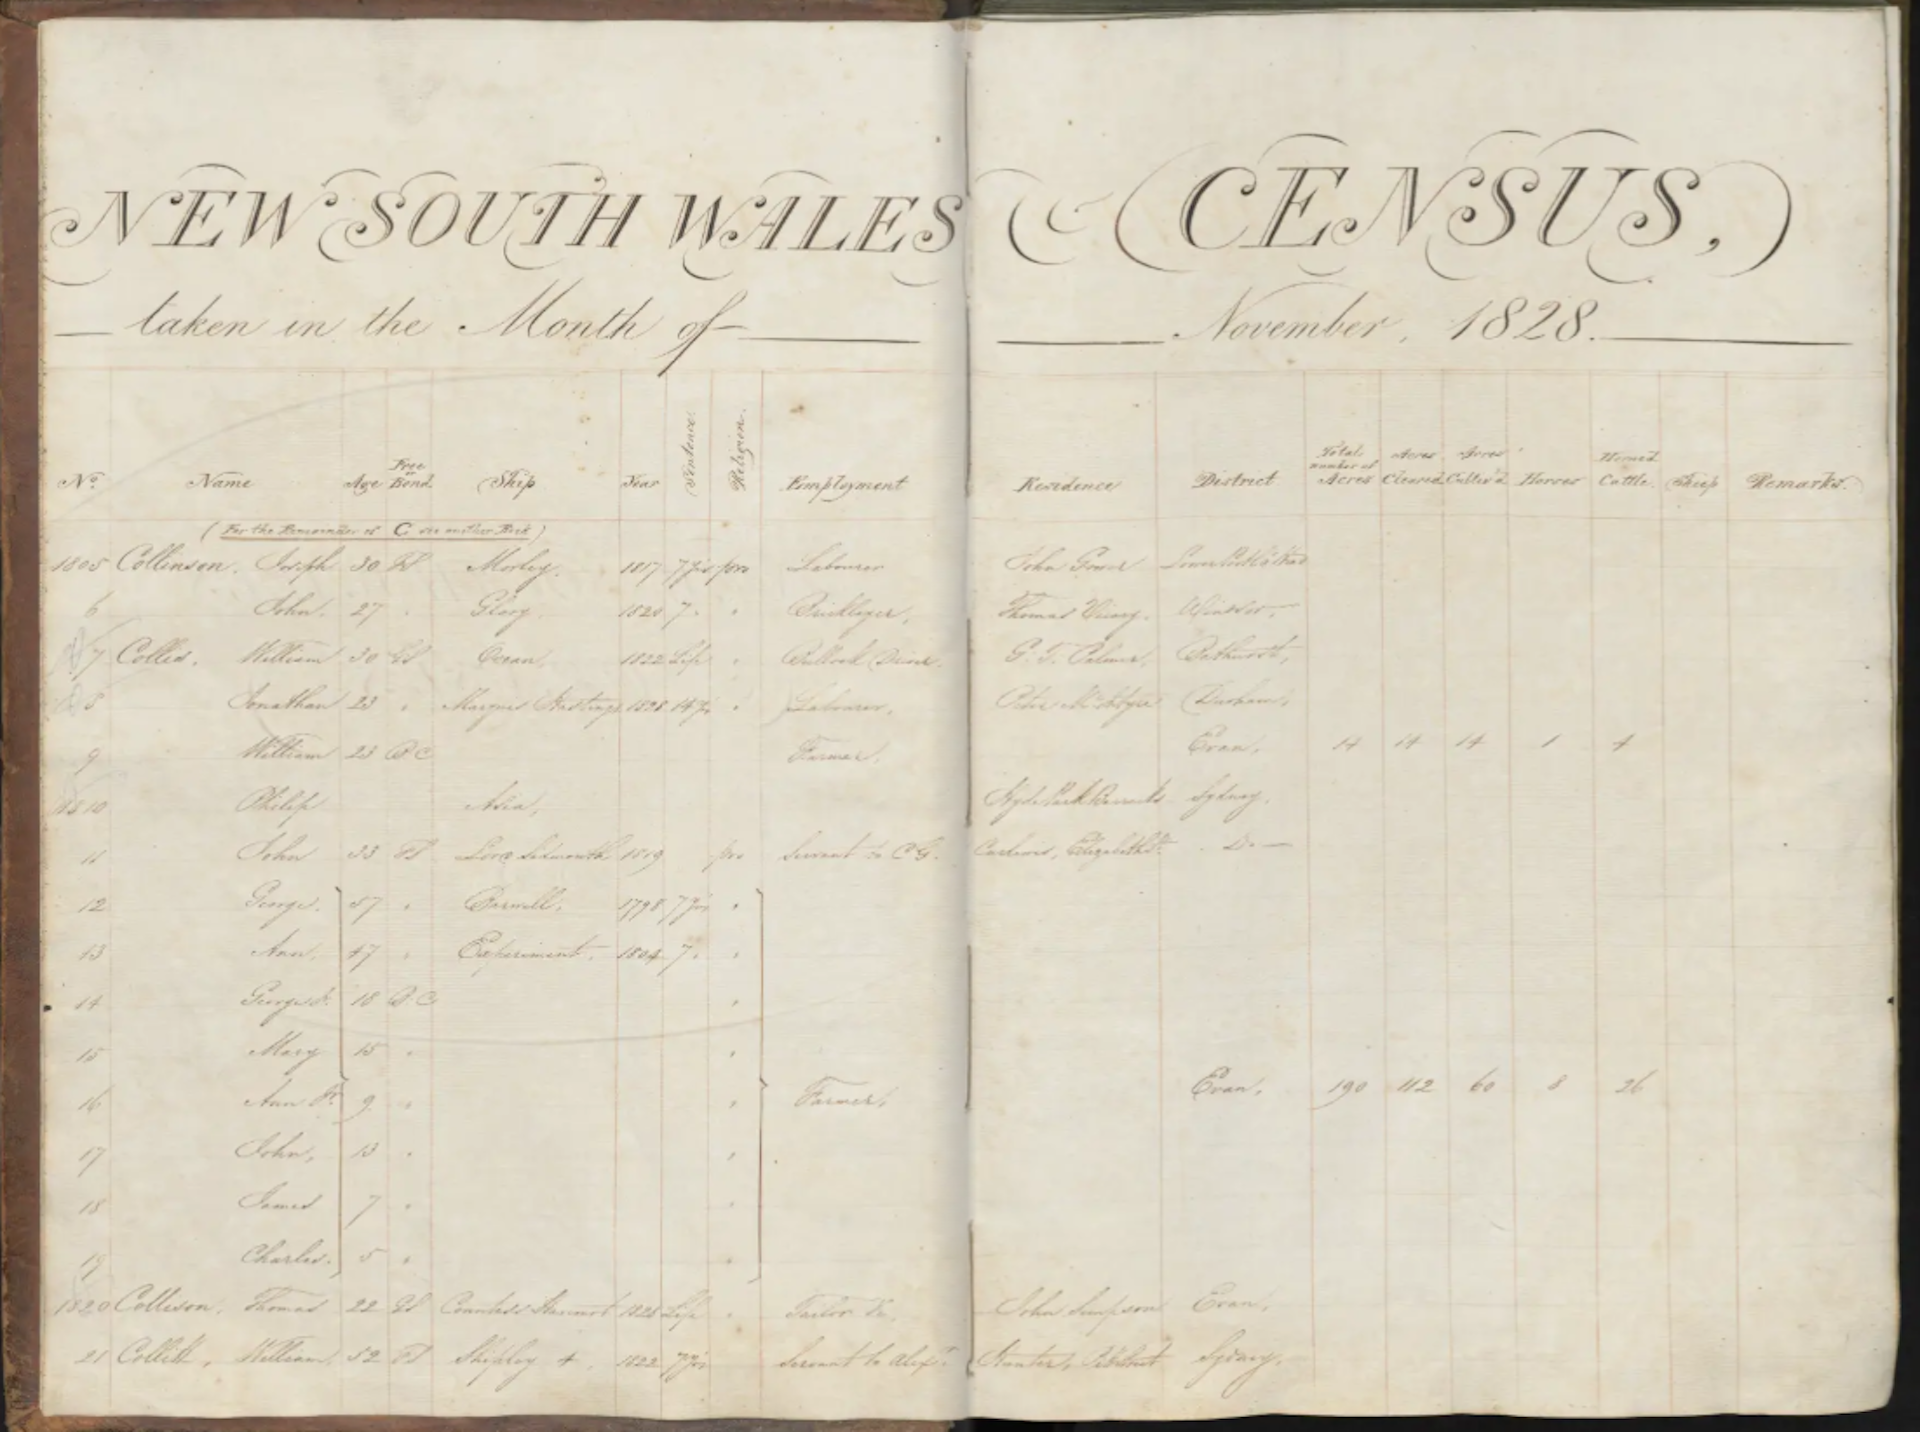 NEW SOUTH WALES CENSUS,
taken in the Month of November, 1828.
No. Name Age Free or Bond Ship Year Sentence Religion. Employment Residence District Total number of Acres Acres Cleared Acres Cultiv'd Horses Horned Cattle. Sheep Remarks.
(For the Remainder of C see another Book)
1805 Collinson. Joseph 30 FS Morley. 1817 7 yrs pro Labourer John Gower
6 John. 27 " Glory. 1820 7 " " Thomas Windsor
7 Collis. William 30 GS Ocean. 1822 Life " Bullock Driver. G. T. Palmer, Bathurst,
8 Jonathan 23 " Marquis Hastings 1828 14 yrs " Labourer, Peter McIntyre Durham,
9 William 23 BC Farmer, Evan, 14 14 14 1 4
1810 Philip Asia, Hyde Park Barracks Sydney.
11 John 33 FS Lord Sidmouth 1819 pro Servant to C G. Do
12 George. 57 " Barwell, 1798 7 yrs "
13 Ann, 47 " Experiment. 1804 7 " "
14 George Jr. 18 B.C "
15 Mary 15 " "
16 Ann Jr. 9 " " Farmer, Evan, 190 112 60 8 26
17 John, 13 " "
18 James 7 " "
19 Charles. 5 " "
1820 Collison, Thomas 22 GS Countess Harcourt Life " Tailor John Simpson Evan,
21 Collitt, William, 52 FS Shipley 4. 1822 7 yrs Servant to Alexr. Hunter, Sydney.